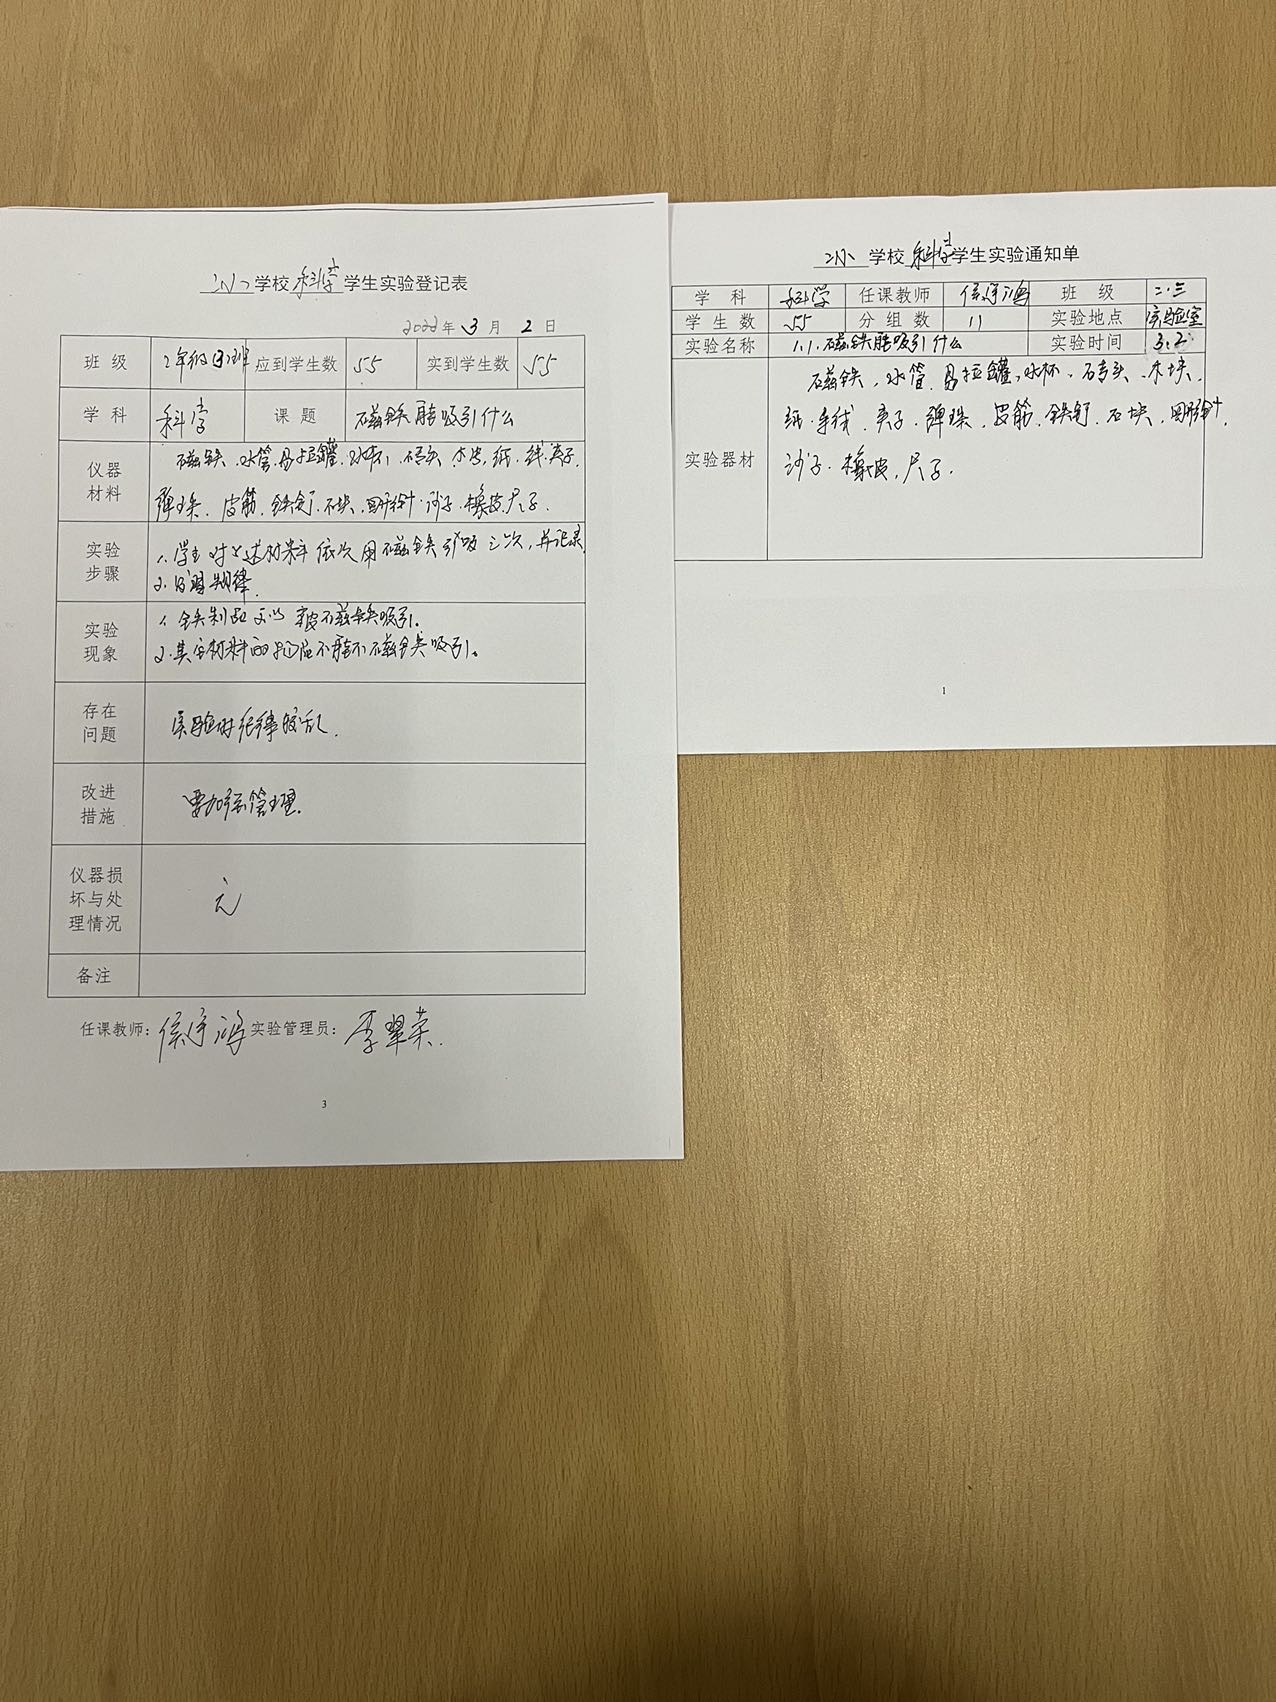 学校科学学生实验登记表
2022年3月2日
班级 2年级 班 应到学生数 55 实到学生数 55
学科 科学 课题 磁铁能吸引什么
仪器材料 磁铁、水管、易拉罐、水杯、石头、木块、纸、线、夹子、
弹珠、皮筋、铁钉、石块、回形针、沙子、橡皮、尺子.
实验步骤 1.学生对上述材料依次用磁铁引吸三次,并记录
2.发现规律.
实验现象 1.铁制品可以被磁铁吸引.
2.其它材料的物品不能被磁铁吸引。
存在问题 实验时纪律较乱.
改进措施 要加强管理.
仪器损坏与处理情况 无
备注
任课教师: 实验管理员: 李翠荣.
3
学校科学学生实验通知单
学科 科学 任课教师 班级 二.三
学生数 55 分组数 11 实验地点 实验室
实验名称 1.1.磁铁能吸引什么 实验时间 3.2
实验器材 磁铁、水管、易拉罐、水杯、石头、木块、
纸、毛线、夹子、弹珠、皮筋、铁钉、石块、回形针、
沙子、橡皮、尺子.
1